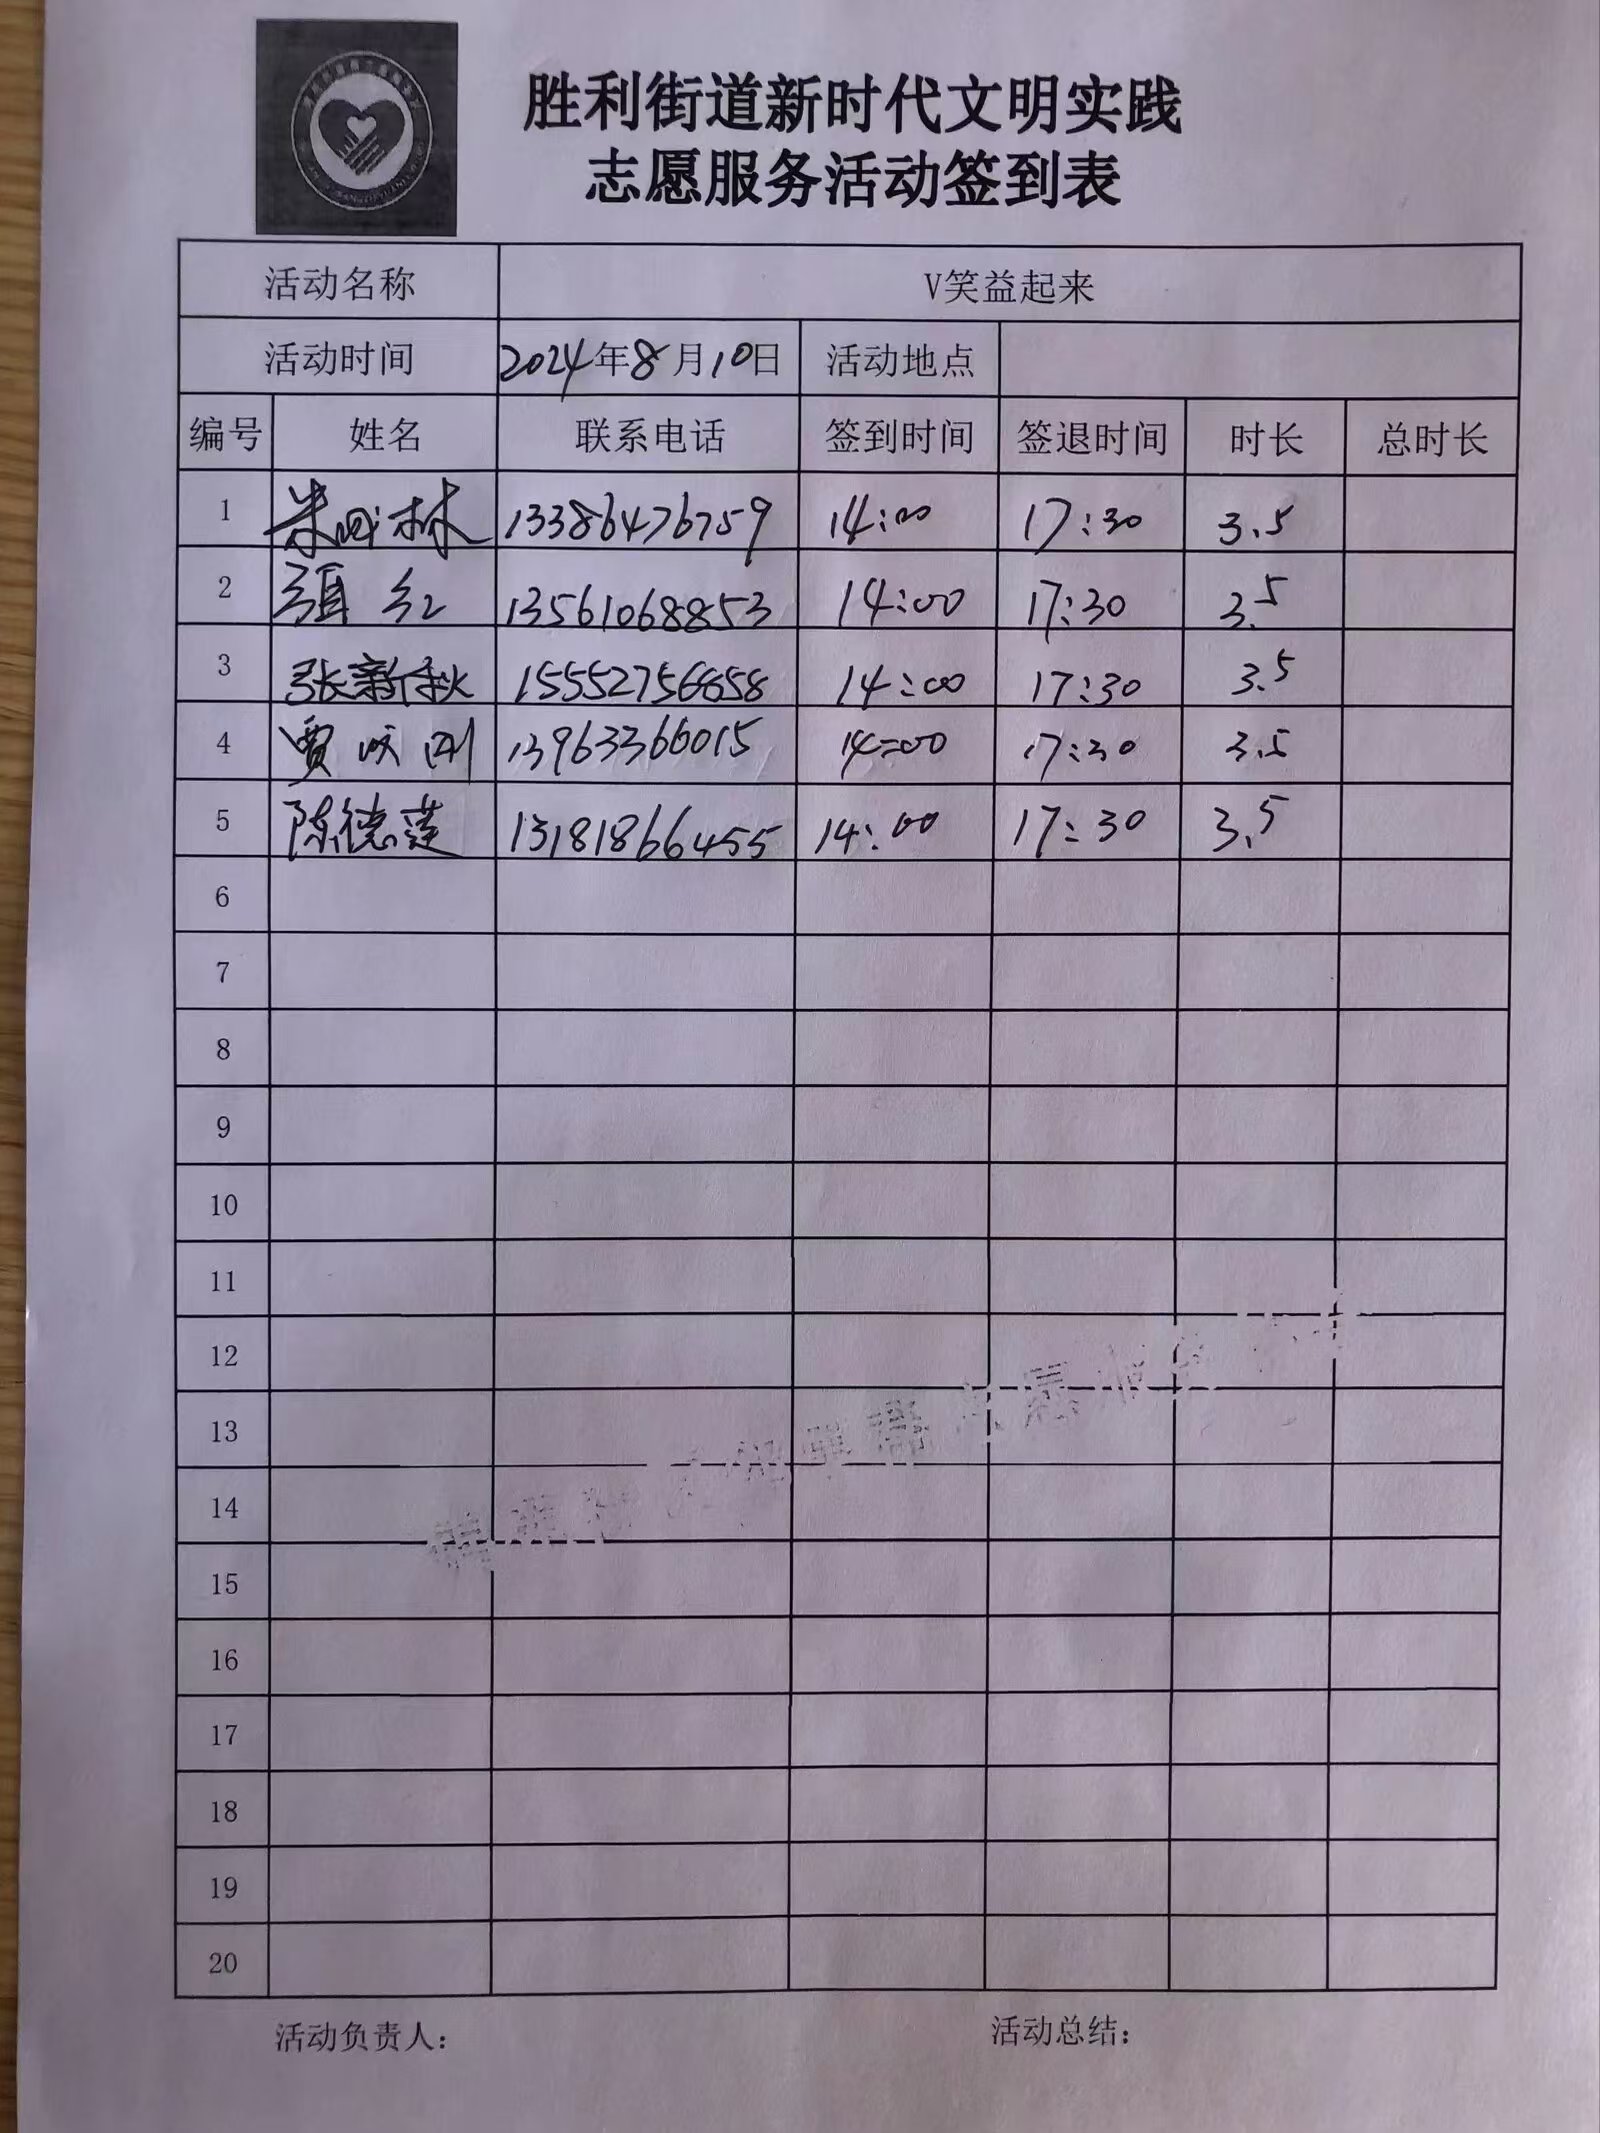 胜利街道新时代文明实践
志愿服务活动签到表
活动名称 V笑益起来
活动时间 2024年8月10日 活动地点
编号 姓名 联系电话 签到时间 签退时间 时长 总时长
1 13386476759 14:00 17:30 3.5
2 红 13561068853 14:00 17:30 3.5
3 张新秋 15552756658 14:00 17:30 3.5
4 贾庆刚 13963366015 14:00 17:30 3.5
5 陈德莲 13181866455 14:00 17:30 3.5
6
7
8
9
10
11
12
13
14
15
16
17
18
19
20
活动负责人: 活动总结: